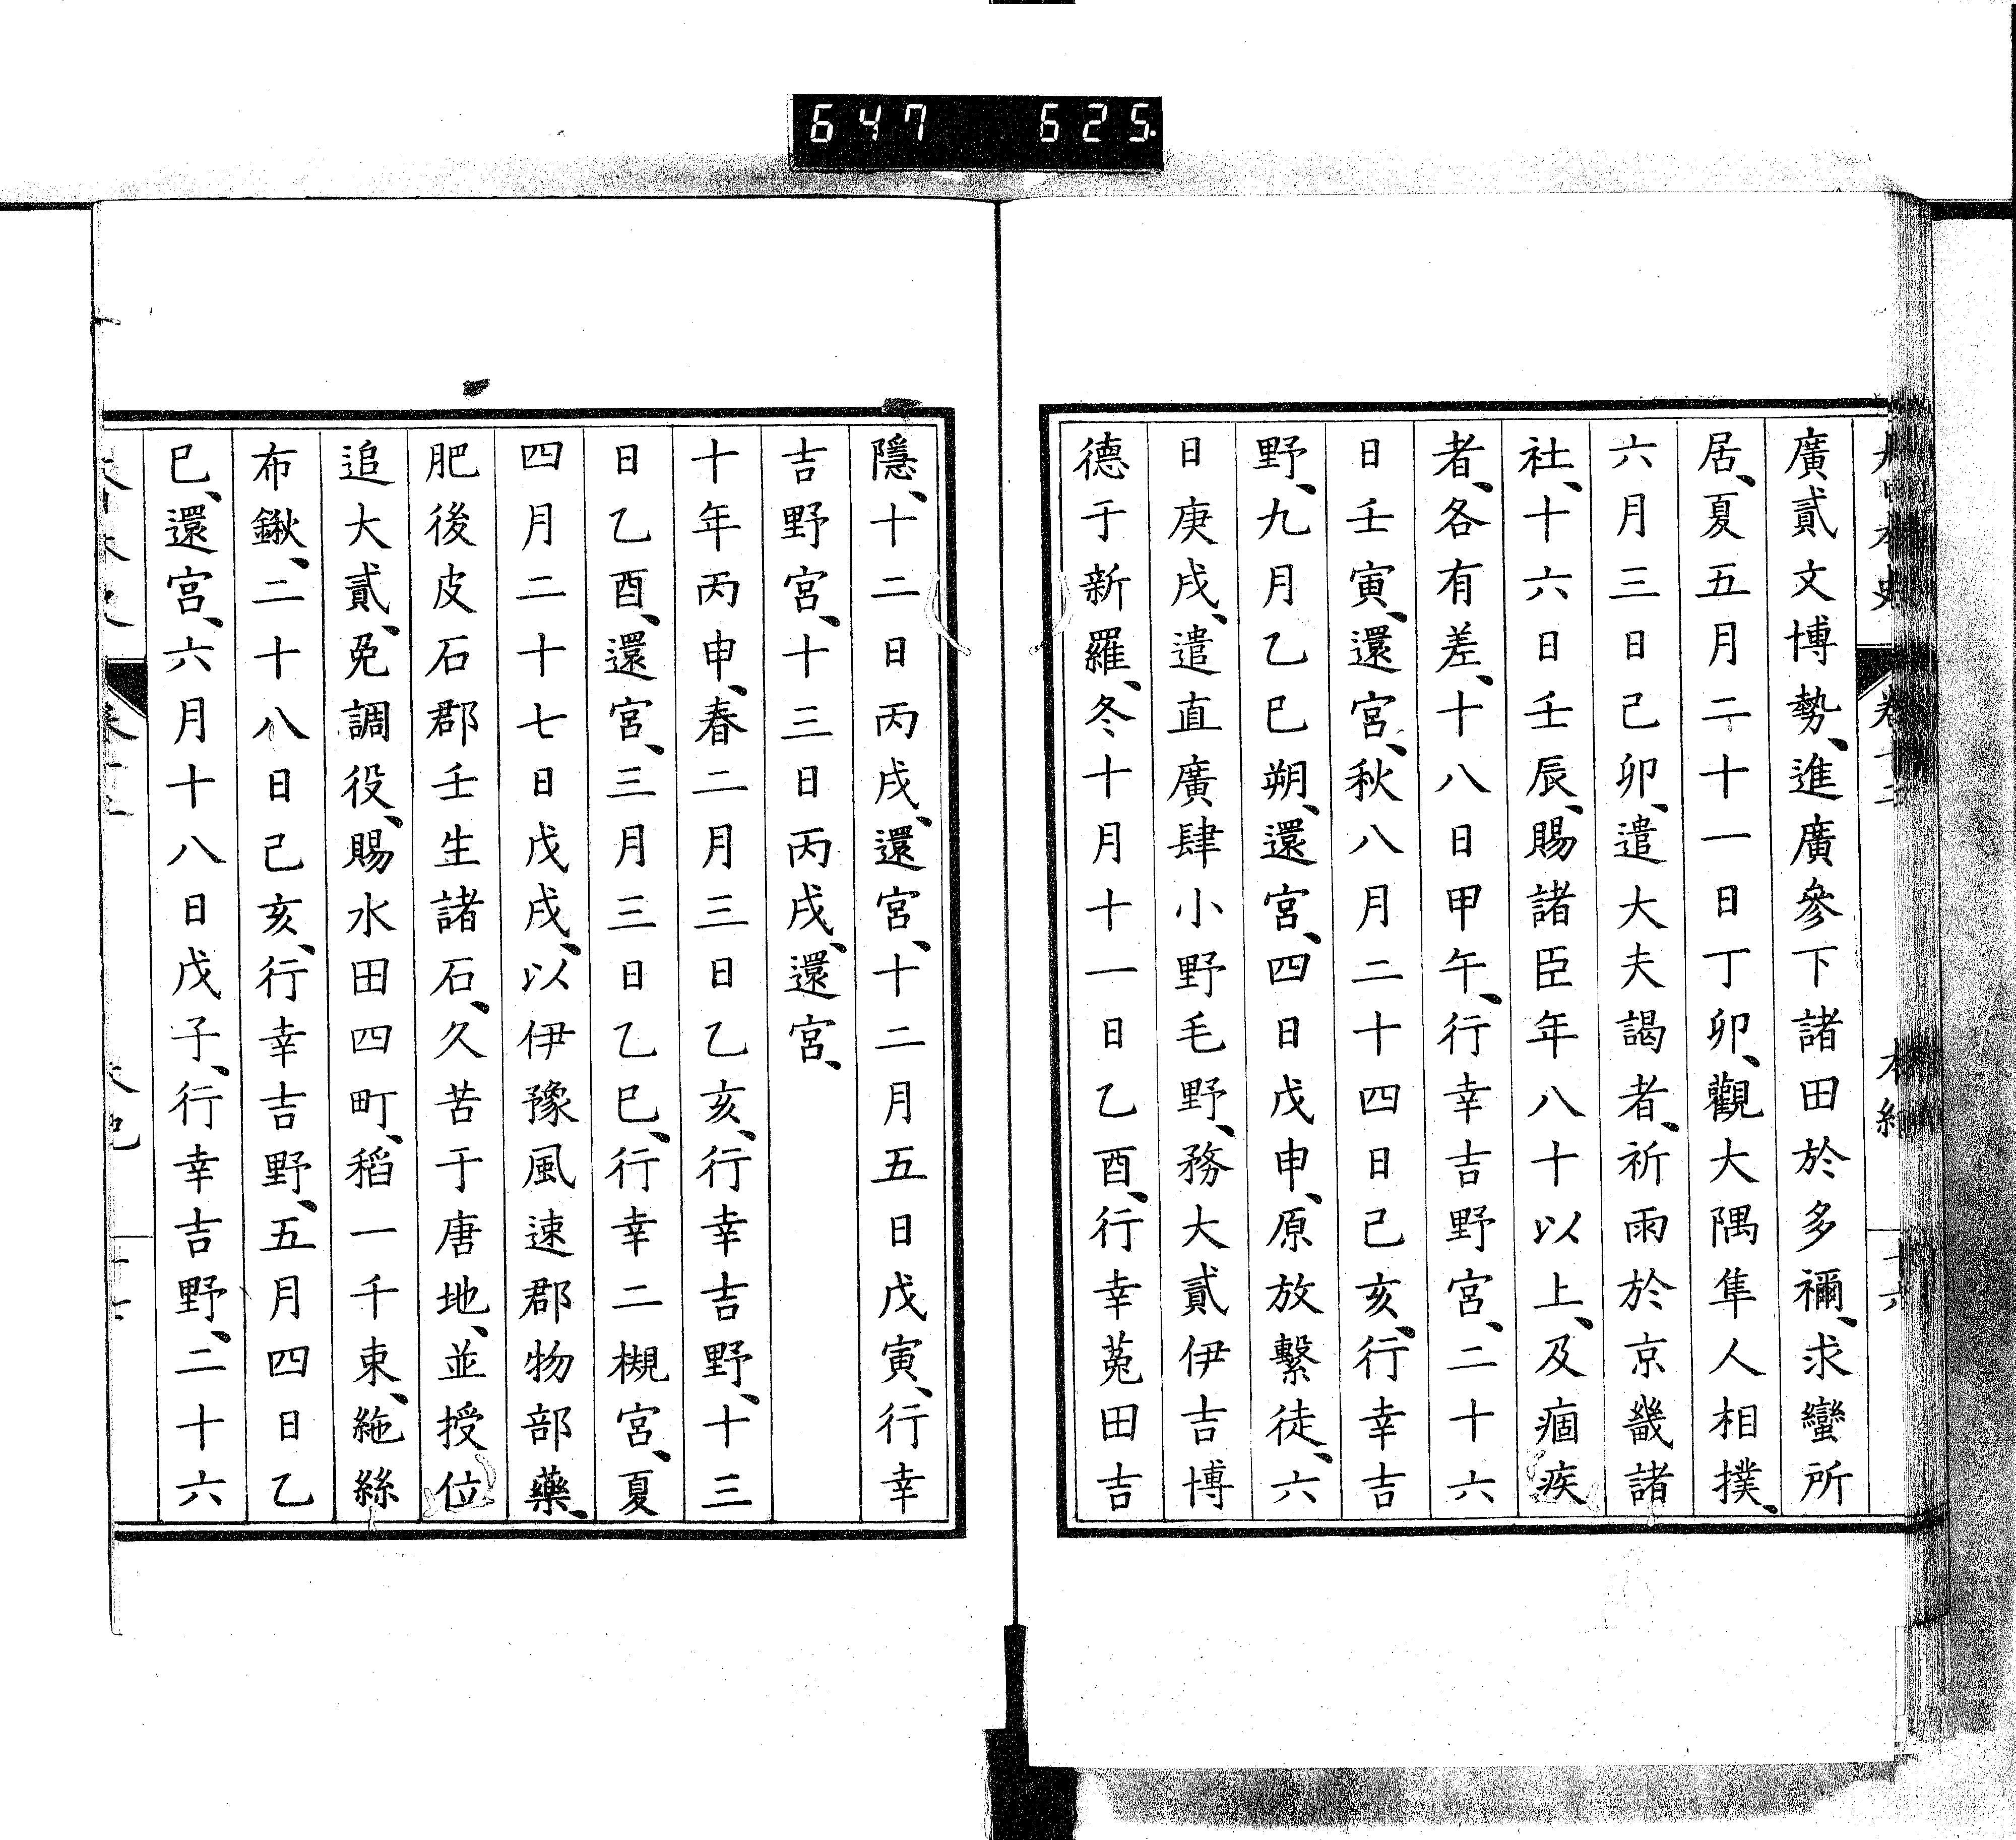 647 625.
廣貳文博勢、進廣參下諸田於多禰、求蠻所
居、夏五月二十一日丁卯、觀大隅隼人相撲、
六月三日己卯、遣大夫謁者、祈雨於京畿諸
社、十六日壬辰、賜諸臣年八十以上、及痼疾
者、各有差、十八日甲午、行幸吉野宮、二十六
日壬寅、還宮、秋八月二十四日己亥、行幸吉
野、九月乙巳朔、還宮、四日戊申、原放繫徒、六
日庚戌、遣直廣肆小野毛野、務大貳伊吉博
德于新羅、冬十月十一日乙酉、行幸菟田吉
隱、十二日丙戌、還宮、十二月五日戊寅、行幸
吉野宮、十三日丙戌、還宮、
十年丙申、春二月三日乙亥、行幸吉野、十三
日乙酉、還宮、三月三日乙巳、行幸二槻宮、夏
四月二十七日戊戌、以伊豫風速郡物部藥、
肥後皮石郡壬生諸石、久苦于唐地、並授位
追大貳、免調役、賜水田四町、稻一千束、絁絲
布鍬、二十八日己亥、行幸吉野、五月四日乙
巳、還宮、六月十八日戊子、行幸吉野、二十六